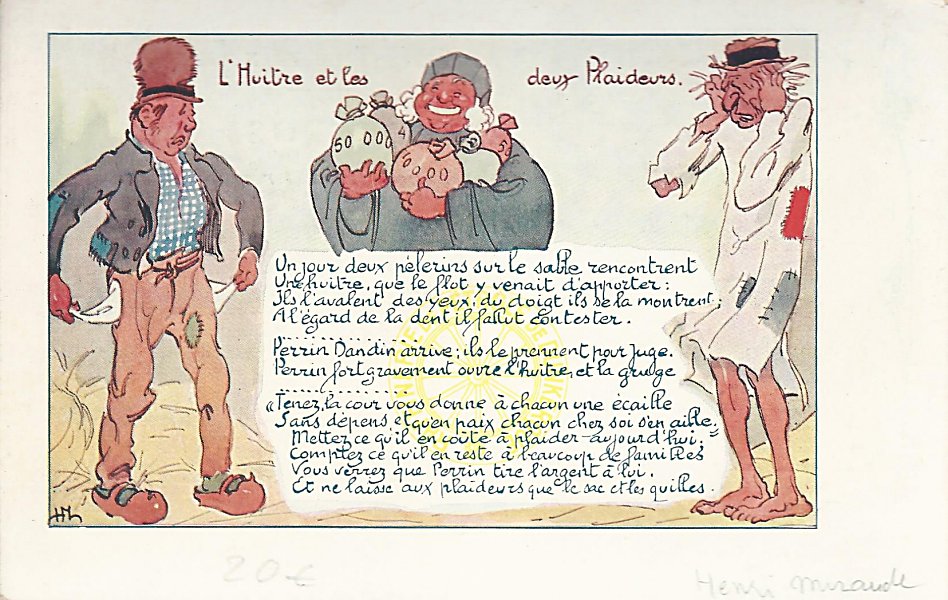 L'Huitre et les deux Plaideurs.
50 000 4
0.00
Un jour deux pèlerins sur le sable rencontrent
Une huitre, que le flot y venait d'apporter :
Ils l'avalent des yeux, du doigt ils se la montrent ;
A l'égard de la dent il fallut contester.
..................
Perrin Dandin arrive ; ils le prennent pour juge.
Perrin fort gravement ouvre l'huitre, et la gruge
..................
"Tenez, la cour vous donne à chacun une écaille
Sans dépens, et qu'en paix chacun chez soi s'en aille."
Mettez ce qu'il en coûte à plaider aujourd'hui ;
Comptez ce qu'il en reste à beaucoup de familles
Vous verrez que Perrin tire l'argent à lui.
Et ne laisse aux plaideurs que le sac et les quilles.
HM
20€
Henri Mirande